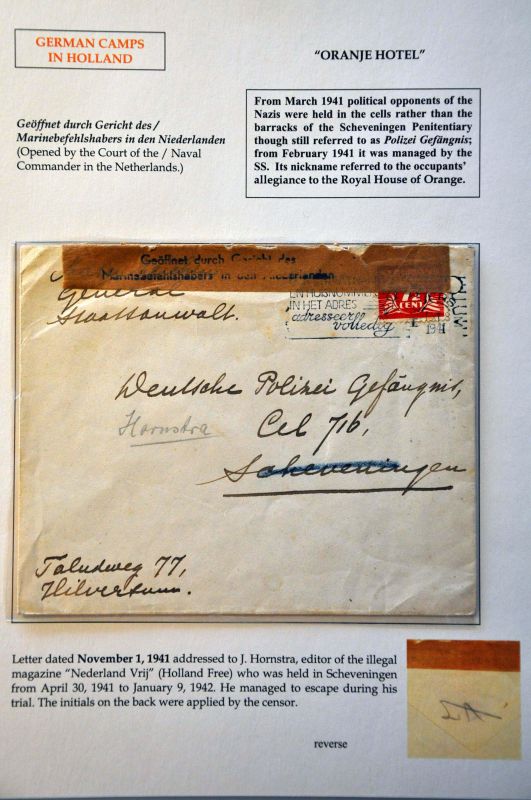 GERMAN CAMPS
IN HOLLAND
"ORANJE HOTEL"
Geöffnet durch Gericht des/
Marinebefehlshabers in den Niederlanden
(Opened by the Court of the / Naval
Commander in the Netherlands.)
From March 1941 political opponents of the
Nazis were held in the cells rather than the
barracks of the Scheveningen Penitentiary
though still referred to as Polizei Gefängnis;
from February 1941 it was managed by the
SS. Its nickname referred to the occupants'
allegiance to the Royal House of Orange.
Geöffnet durch Gericht des
Marinebefehlshabers in den Niederlanden
General
Staatsanwalt.
EN HUISNUMMER
IN HET ADRES
adresseer
volledig
7½
CENT
1941
Deutsche Polizei Gefängnis,
Hornstra
Cel 716,
Scheveningen
Taludweg 77,
Hilversum.
Letter dated November 1, 1941 addressed to J. Hornstra, editor of the illegal
magazine "Nederland Vrij" (Holland Free) who was held in Scheveningen
from April 30, 1941 to January 9, 1942. He managed to escape during his
trial. The initials on the back were applied by the censor.
reverse